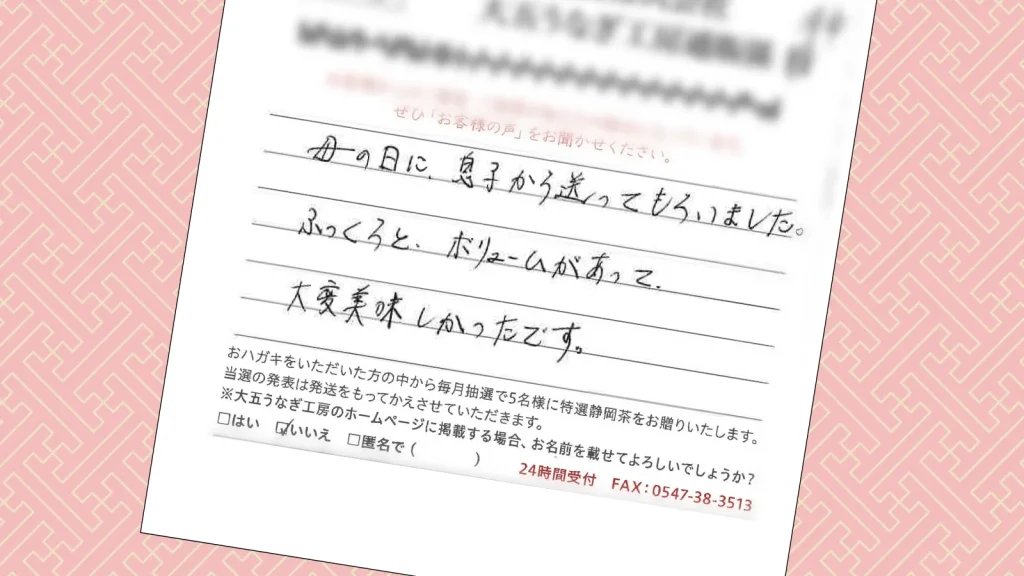 大五うなぎ工房通販課
ぜひ「お客様の声」をお聞かせください。
母の日に、息子から送ってもらいました。
ふっくらと、ボリュームがあって、
大変美味しかったです。
おハガキをいただいた方の中から毎月抽選で5名様に特選静岡茶をお贈りいたします。
当選の発表は発送をもってかえさせていただきます。
※大五うなぎ工房のホームページに掲載する場合、お名前を載せてよろしいでしょうか?
□はい ☑いいえ □匿名で( )
24時間受付 FAX:0547-38-3513